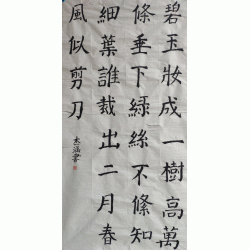 碧玉妝成一樹高萬
條垂下綠絲不條知
細葉誰裁出二月春
風似剪刀